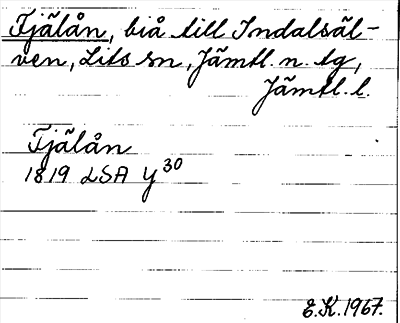 Fjälån, biå till Indalsäl-
ven, Lits sn, Jämtl. n. tg,
Jämtl. l.
Fjälån
1819 LSA Y 30
E.K. 1967.